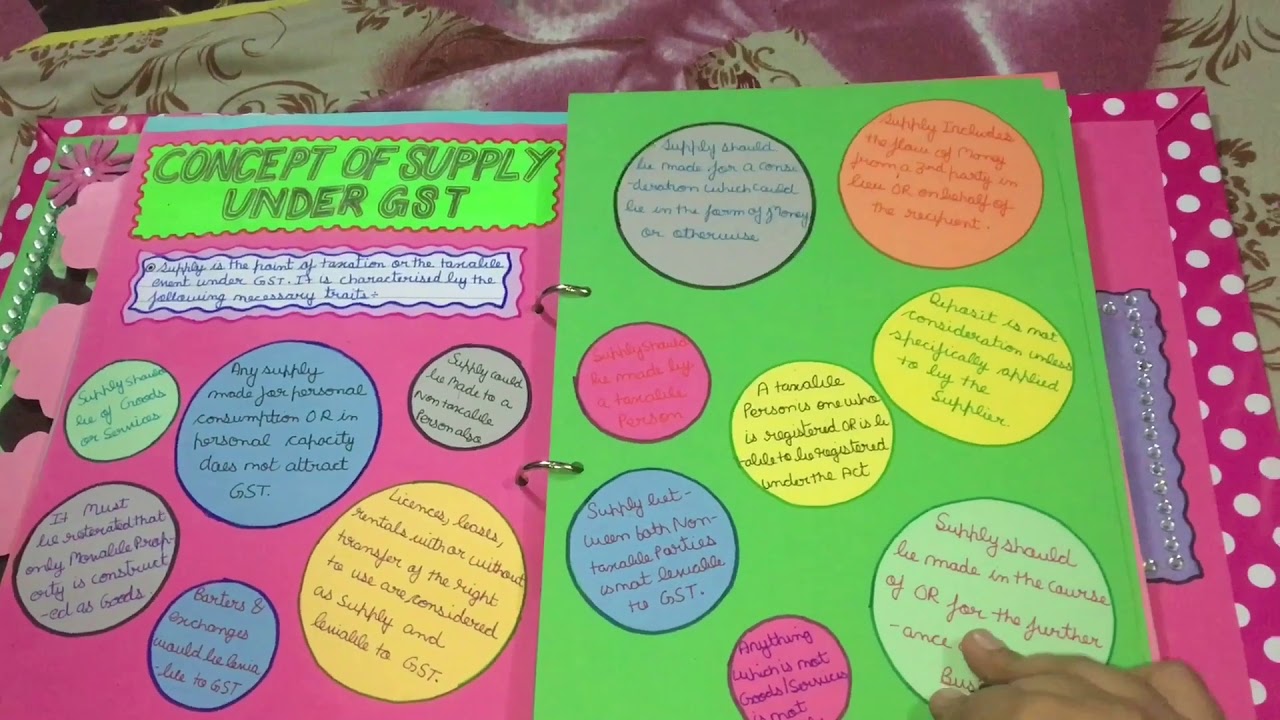 CONCEPT OF SUPPLY
UNDER GST
Supply is the point of taxation or the taxable
event under GST. It is characterised by the
following necessary traits:
Supply should
be of Goods
or Services
Any supply
made for personal
consumption OR in
personal capacity
does not attract
GST.
Supply could
be Made to a
Non taxable
Person also
It Must
be reterated that
only Movable Prop-
erty is construct
-ed as Goods.
Barters &
exchanges
would be levia
-ble to GST
Licences, leases,
rentals with or without
transfer of the right
to use are considered
as Supply and
leviable to GST.
Supply should
be made for a consi
-deration which could
be in the form of Money
or otherwise
Supply Includes
the flow of Money
from a 3rd party in
lieu OR on behalf of
the recipient.
Supply should
be made by
a taxable
Person
A taxable
Person is one who
is registered OR is li
-able to be registered
under the Act
Deposit is not
consideration unless
specifically applied
to by the
Supplier.
Supply bet-
ween both Non-
taxable Parties
is not leviable
to GST.
Anything
which is not
Goods/Services
is not
Supply should
be made in the course
of OR for the further
-ance
Bus